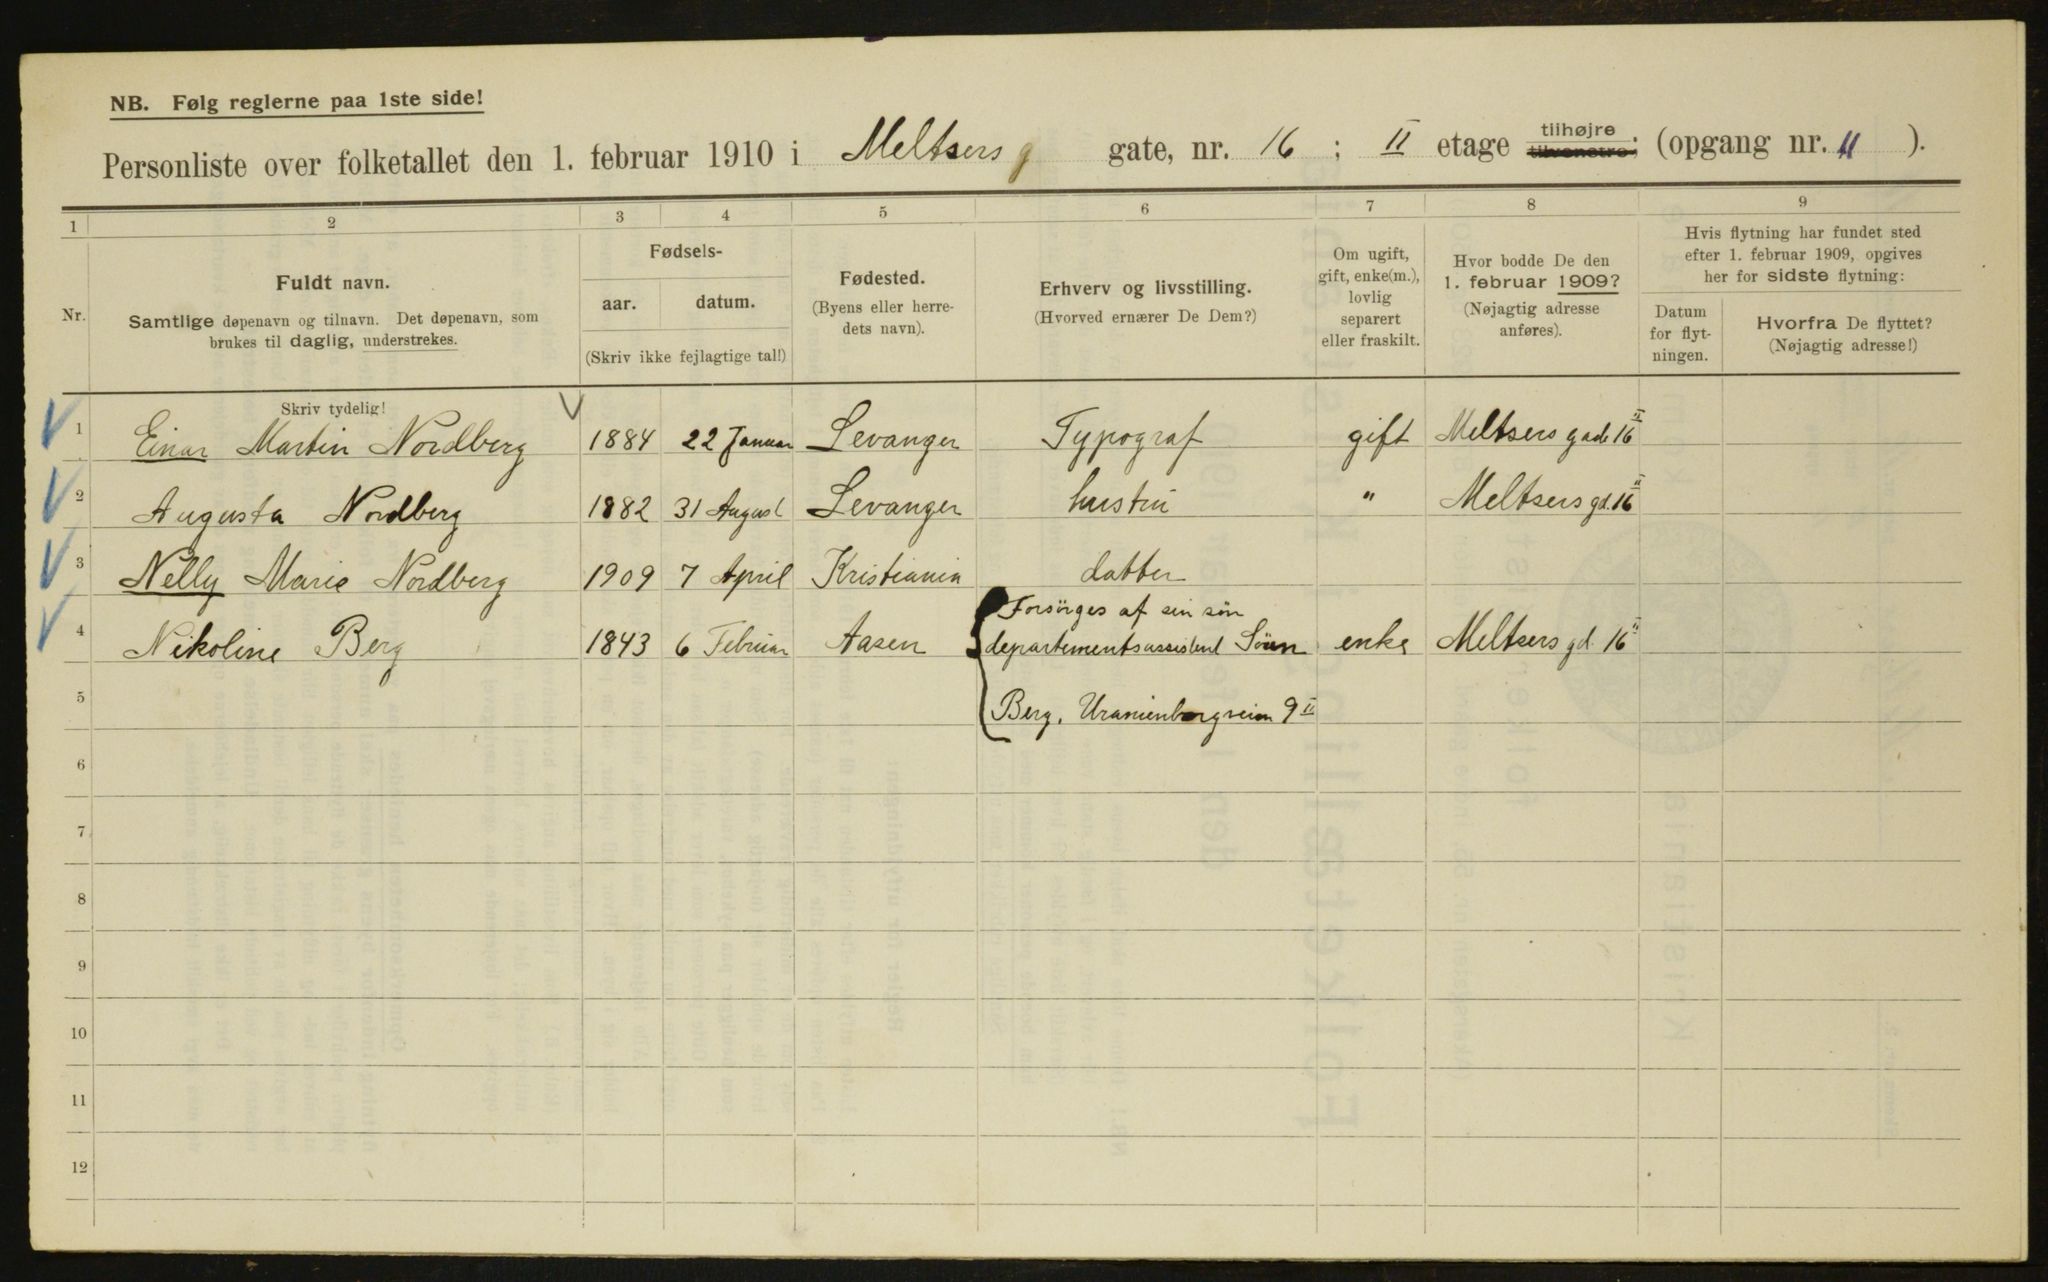 NB. Følg reglerne paa 1ste side!
Personliste over folketallet den 1. februar 1910 i Meltsers g gate, nr. 16 ; II etage tilhøjre tilvenstre; (opgang nr. 11 ).
1 2 3 4 5 6 7 8 9
Nr.
Fuldt navn.
Samtlige døpenavn og tilnavn. Det døpenavn, som
brukes til daglig, understrekes.
Fødsels-
aar. datum.
(Skriv ikke fejlagtige tal!)
Fødested.
(Byens eller herre-
dets navn).
Erhverv og livsstilling.
(Hvorved ernærer De Dem?)
Om ugift,
gift, enke(m.),
lovlig
separert
eller fraskilt.
Hvor bodde De den
1. februar 1909?
(Nøjagtig adresse
anføres).
Hvis flytning har fundet sted
efter 1. februar 1909, opgives
her for sidste flytning:
Datum
for flyt-
ningen.
Hvorfra De flyttet?
(Nøjagtig adresse!)
Skriv tydelig!
1 Einar Martin Nordberg 1884 22 Januar Levanger Typograf gift Meltsers gade 16 II
2 Augusta Nordberg 1882 31 August Levanger hustru " Meltsers gd. 16 II
3 Nelly Marie Nordberg 1909 7 April Kristiania datter
4 Nikoline Berg 1843 6 Februar Aasen Forsörges af sin sön
departementsassistent Sören enke Meltsers gd. 16 II
5 Berg, Uranienborgveien 9 II
6
7
8
9
10
11
12